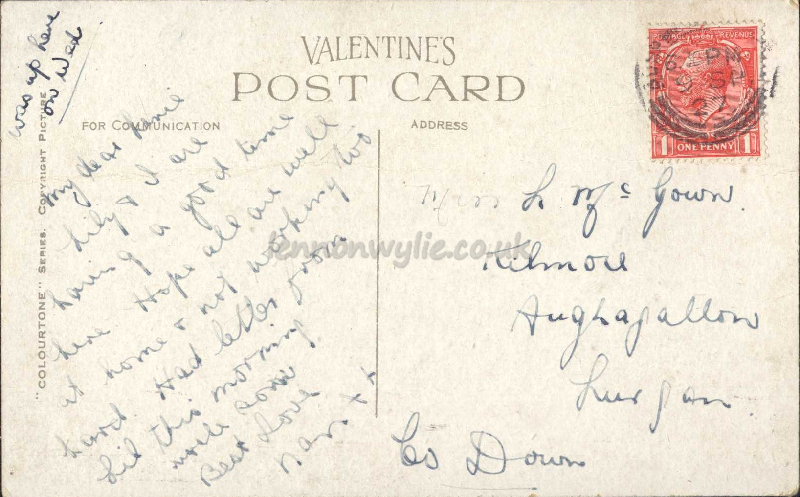 was up here
on Wed
VALENTINE'S
POST CARD
FOR COMMUNICATION
ADDRESS
"COLOURTONE" SERIES. COPYRIGHT PICTURE
My dear
Lily & I are
having a good time
here. Hope all are well
at home & not working too
hard. Had letter from
Lil this morning
write soon
Best Love
Nan x x
Miss L McGown.
Kilmore
Aughagallon
Lurgan
Co Down
REVENUE
1 ONE PENNY 1
lennonwylie.co.uk